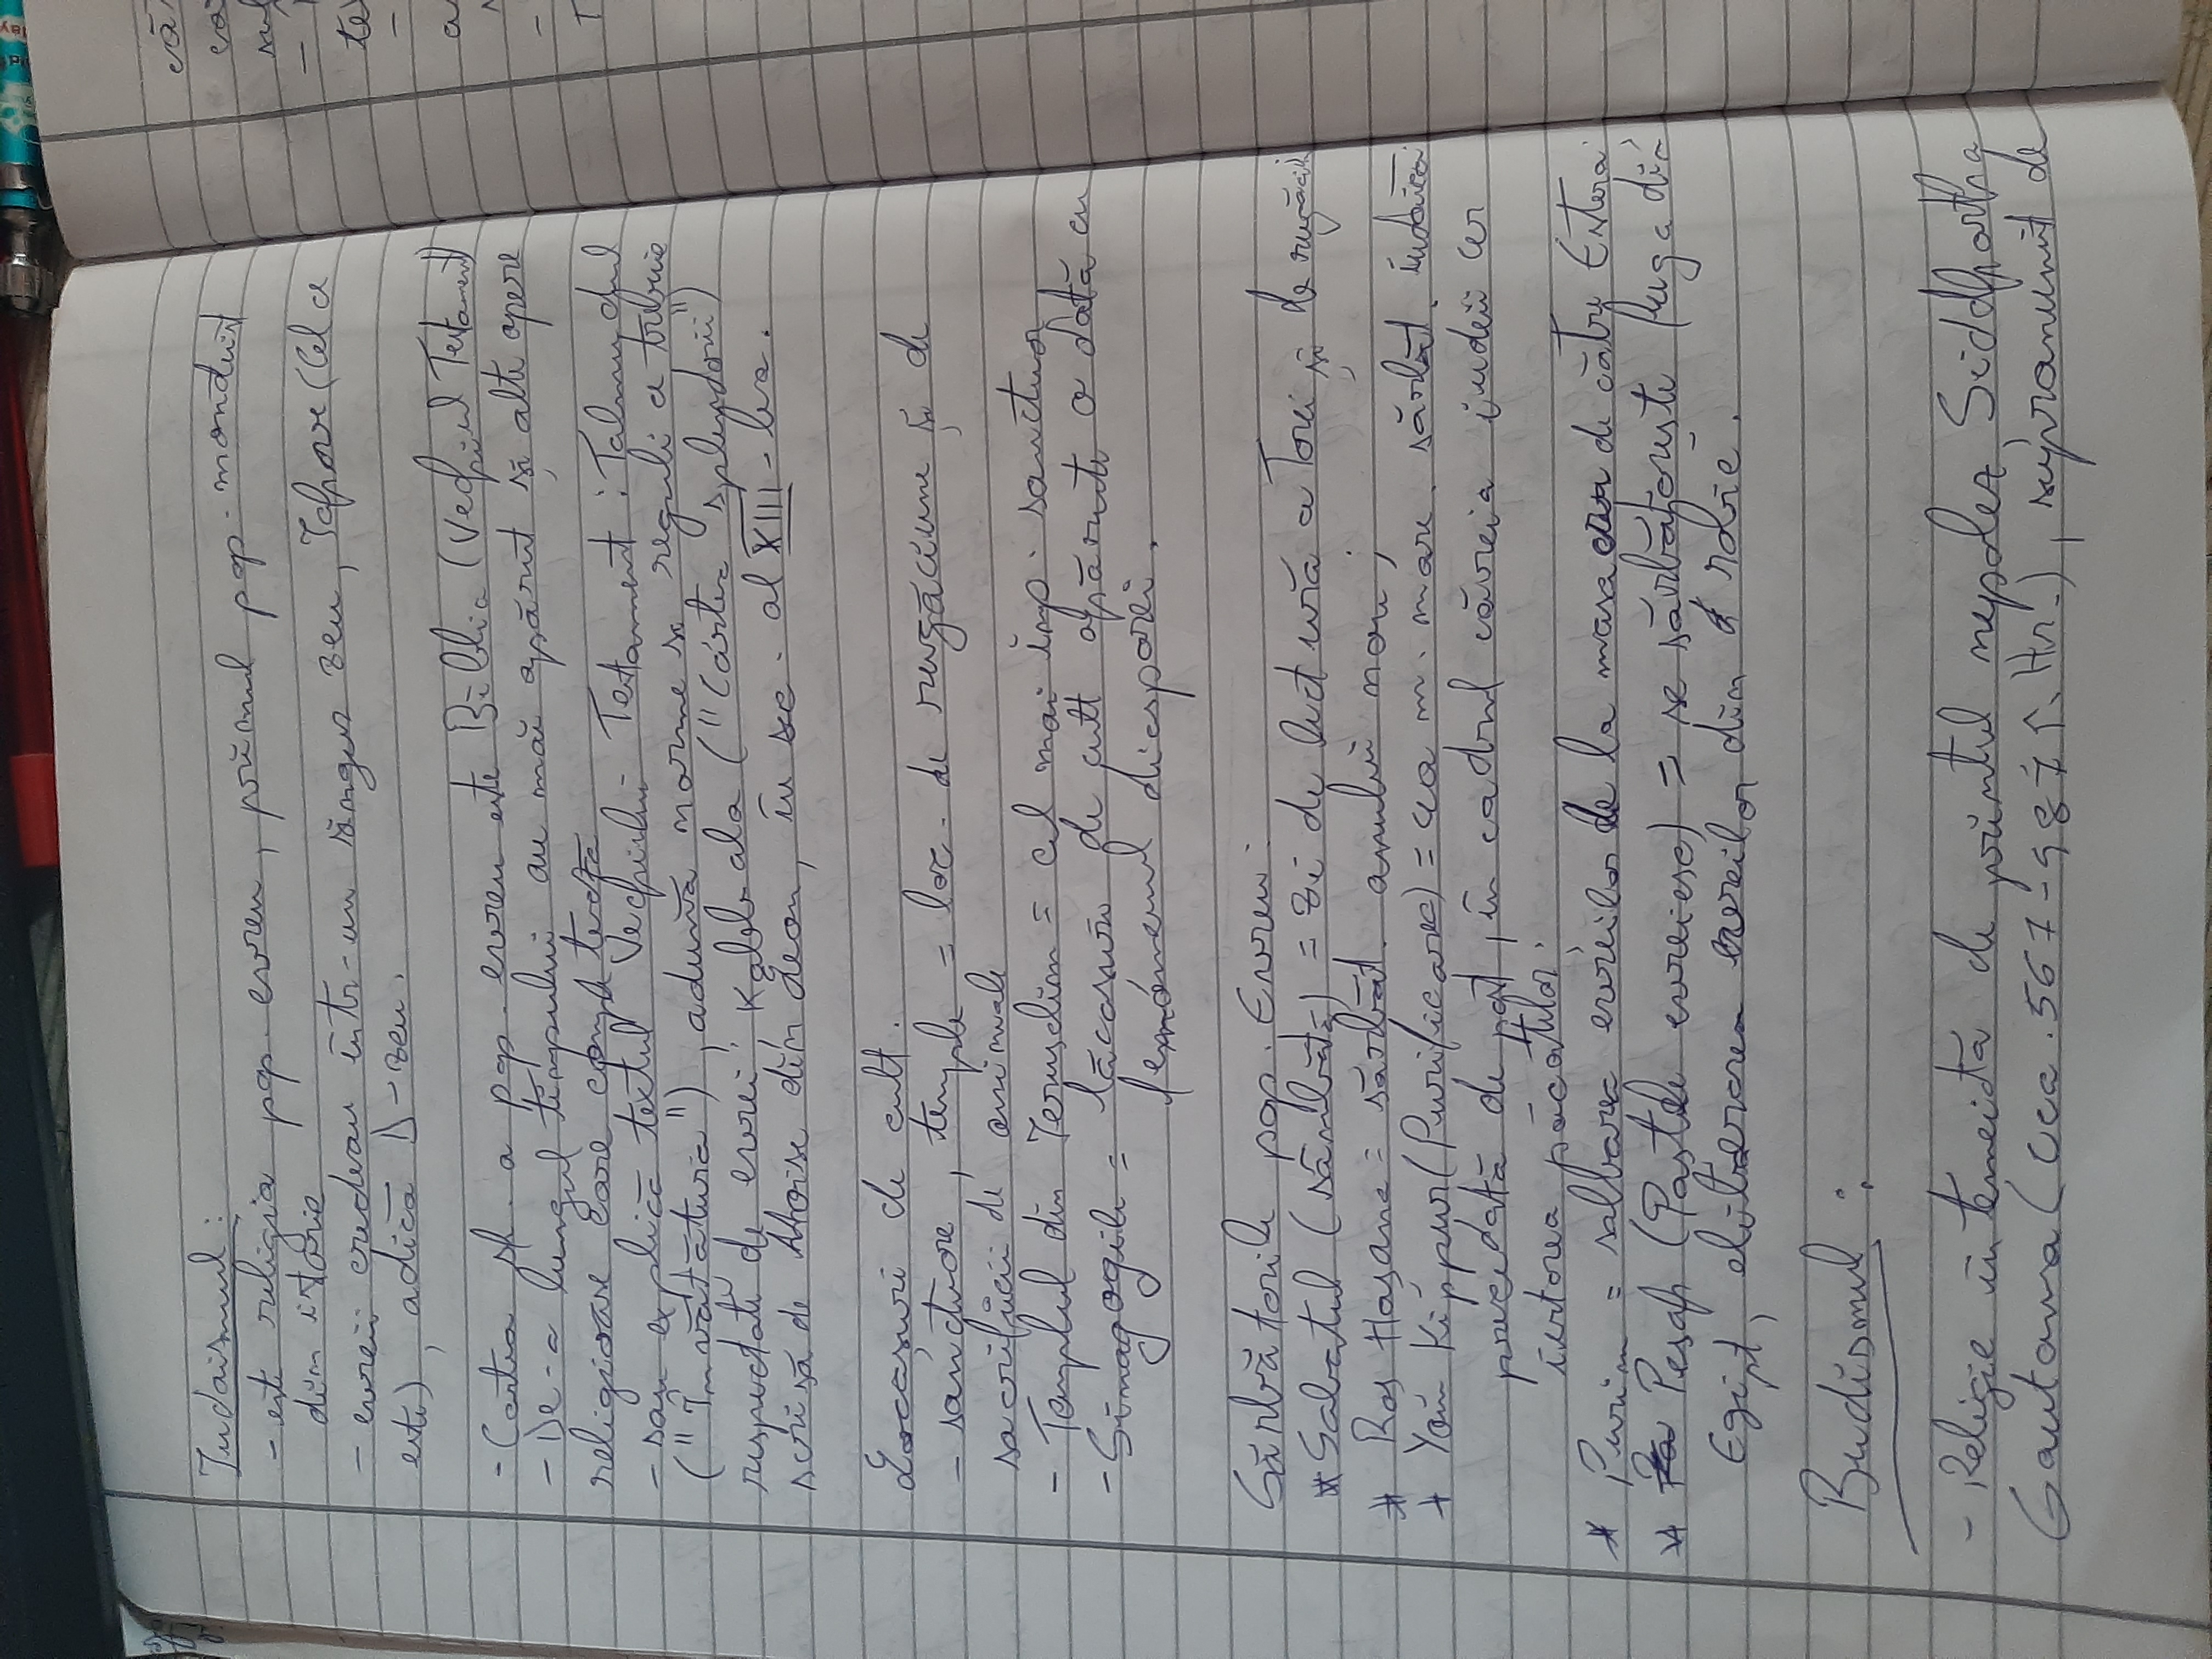 Iudaismul:
- este religia pop. evreu, primul pop. monoteist
din istorie
- evreii credeau într-un singur zeu, Iahve (Cel ce
este), adică D-zeu.
- Cartea sf. a pop. evreu este Biblia (Vechiul Testament)
- De-a lungul timpului au mai apărut și alte opere
religioase care completează
- sau explică textul Vechiului Testament: Talmudul
("Învățătura"), adună norme și reguli ce trebuie
respectate de evrei; Kabbala ("Cartea splendorii")
scrisă de Moise din Leon, în sec. al XIII-lea.
Locașuri de cult.
- sanctuare, temple = loc. de rugăciune și de
sacrificii de animale
- Templul din Ierusalim = cel mai imp. sanctuar
- Sinagogile = lăcașuri de cult apărute o dată cu
fenomenul diasporei.
Sărbătorile pop. Evreu.
* Sabatul (sâmbăta) = zi de lectură a Torei și de rugăciune
* Roș Hașana = sărbăt. anului nou;
* Yom Kippur (Purificarea) = cea m. mare sărbăt. iudaică
precedată de post, în cadrul căreia iudeii cer
iertarea păcatelor.
* Purim = salvarea evreilor de la masacru de către Estera
* Pesah (Paștele evreiesc) = se sărbătorește fuga din
Egipt, eliberarea evreilor din robie.
Budismul:
- Religie întemeiată de prințul nepalez Siddhartha
Gautama (cca. 567-487 î. Hr.), supranumit de